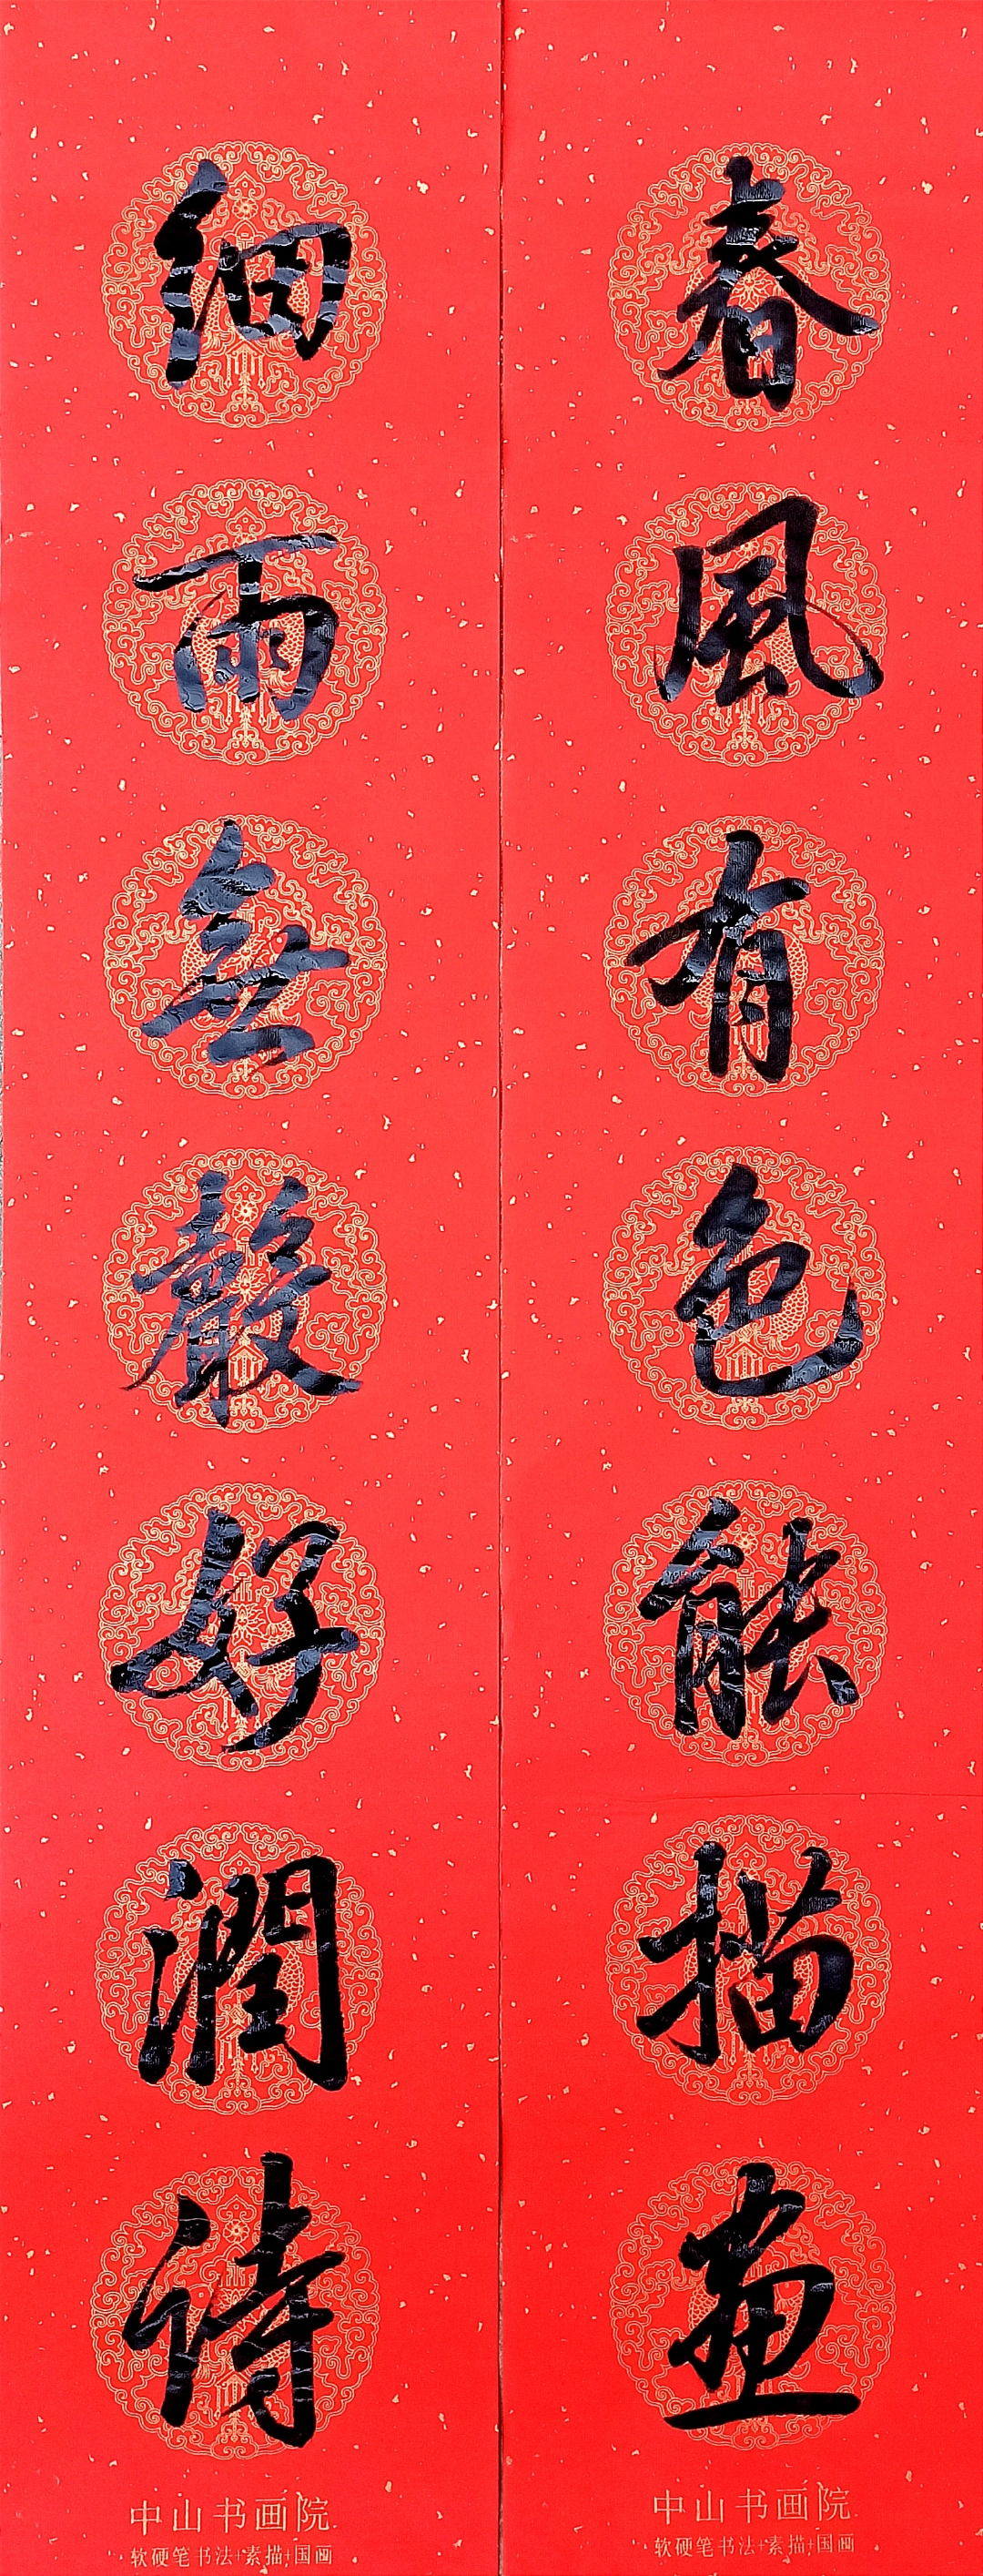 春風有色能描畫
細雨無聲好潤詩
中山书画院
软硬笔书法+素描+国画
中山书画院
软硬笔书法+素描+国画